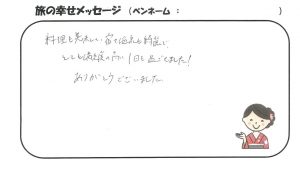 旅の幸せメッセージ （ペンネーム： ）
料理も美味しい 宿も温泉も綺麗で
とても満足度の高い1日を過ごせました！
ありがとうございました